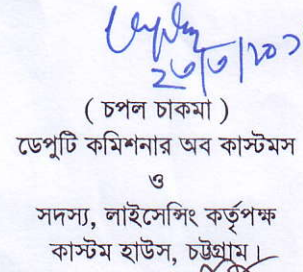 ( চপল চাকমা )
ডেপুটি কমিশনার অব কাস্টমস
ও
সদস্য, লাইসেন্সিং কর্তৃপক্ষ
কাস্টম হাউস, চট্টগ্রাম।